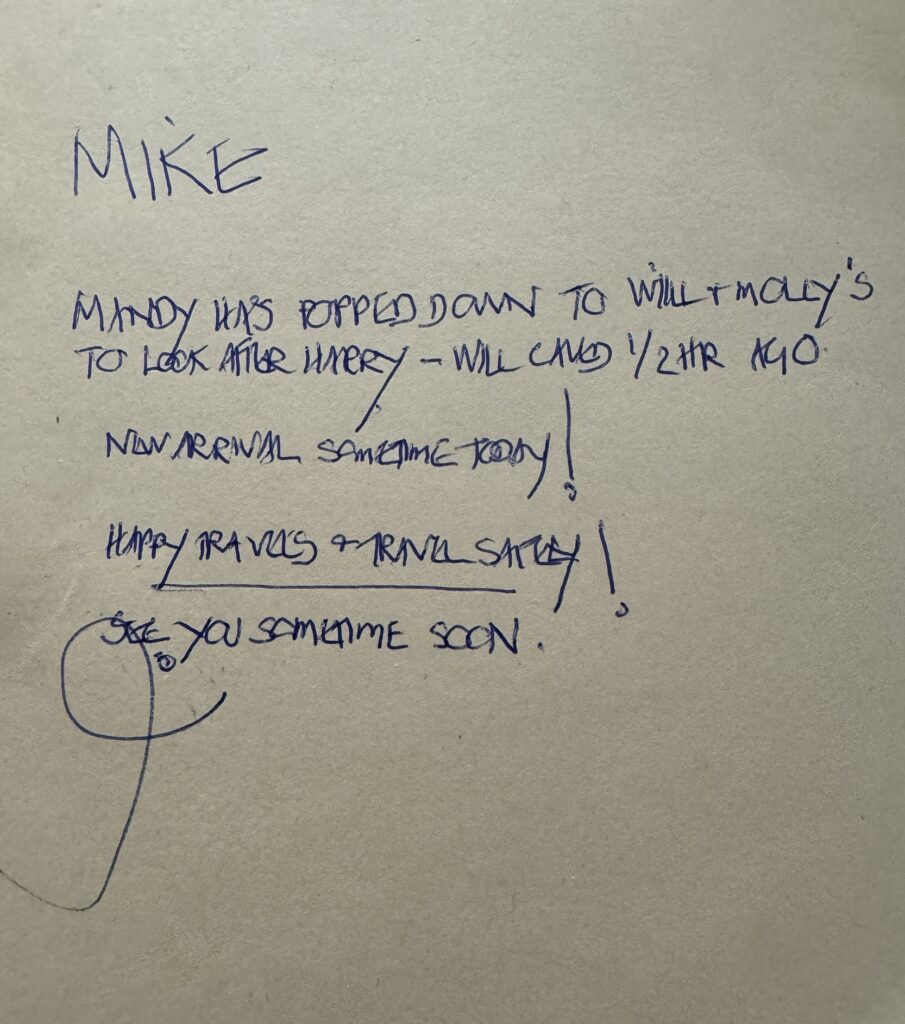 MIKE
MANDY HAS POPPED DOWN TO WILL + MOLLY'S
TO LOOK AFTER HARRY – WILL CALLED 1/2 HR AGO.
NEW ARRIVAL SOMETIME TODAY!
HAPPY TRAVELS + TRAVEL SAFELY!
SEE YOU SOMETIME SOON.